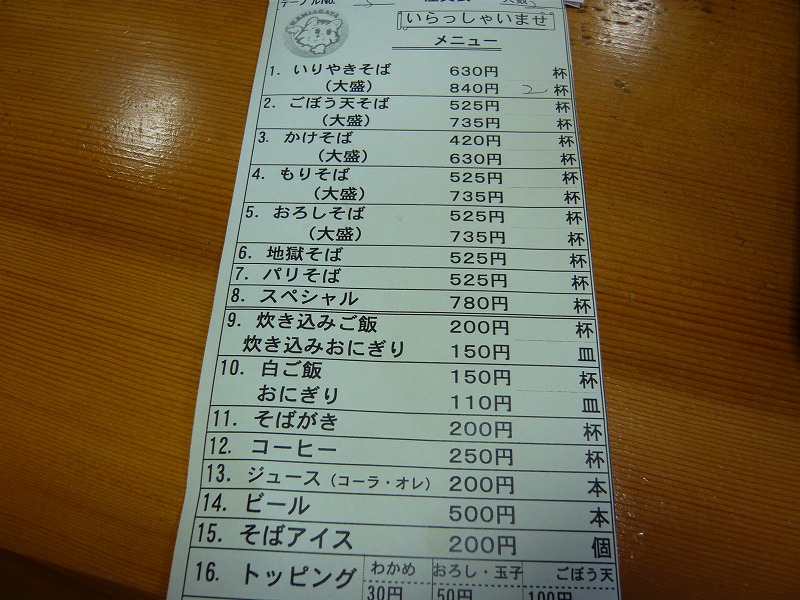 テーブルNo. 5
いらっしゃいませ
メニュー
1. いりやきそば 630円 杯
(大盛) 840円 2 杯
2. ごぼう天そば 525円 杯
(大盛) 735円 杯
3. かけそば 420円 杯
(大盛) 630円 杯
4. もりそば 525円 杯
(大盛) 735円 杯
5. おろしそば 525円 杯
(大盛) 735円 杯
6. 地獄そば 525円 杯
7. パリそば 525円 杯
8. スペシャル 780円 杯
9. 炊き込みご飯 200円 杯
炊き込みおにぎり 150円 皿
10. 白ご飯 150円 杯
おにぎり 110円 皿
11. そばがき 200円 杯
12. コーヒー 250円 杯
13. ジュース (コーラ・オレ) 200円 本
14. ビール 500円 本
15. そばアイス 200円 個
16. トッピング わかめ おろし・玉子 ごぼう天
30円 50円 100円